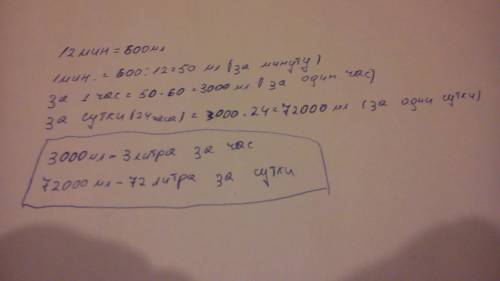 12 мин = 600 мл
1 мин. = 600 : 12 = 50 мл (за минуту)
за 1 час = 50 · 60 = 3000 мл (за один час)
за сутки (24 часа) = 3000 · 24 = 72000 мл (за один сутки)
3000 мл - 3 литра за час
72000 мл - 72 литра за сутки